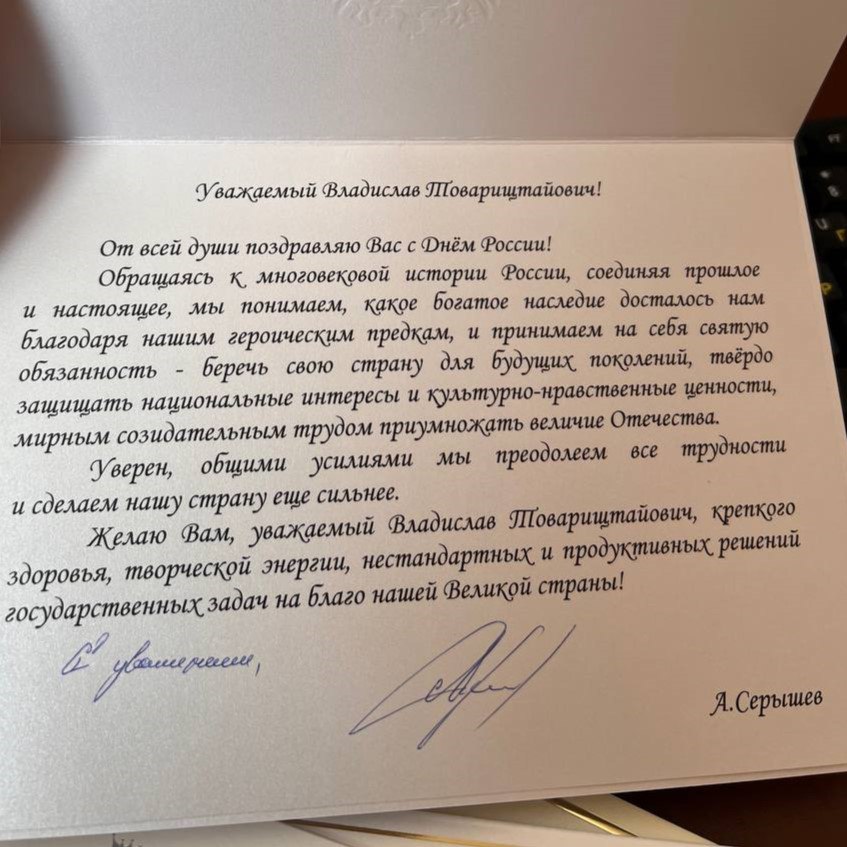 Уважаемый Владислав Товарищтайович!
От всей души поздравляю Вас с Днём России!
Обращаясь к многовековой истории России, соединяя прошлое
и настоящее, мы понимаем, какое богатое наследие досталось нам
благодаря нашим героическим предкам, и принимаем на себя святую
обязанность - беречь свою страну для будущих поколений, твёрдо
защищать национальные интересы и культурно-нравственные ценности,
мирным созидательным трудом приумножать величие Отечества.
Уверен, общими усилиями мы преодолеем все трудности
и сделаем нашу страну еще сильнее.
Желаю Вам, уважаемый Владислав Товарищтайович, крепкого
здоровья, творческой энергии, нестандартных и продуктивных решений
государственных задач на благо нашей Великой страны!
С уважением,
А.Серышев